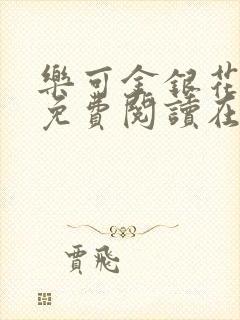 樂可金銀花
免費閱讀在
賈飛